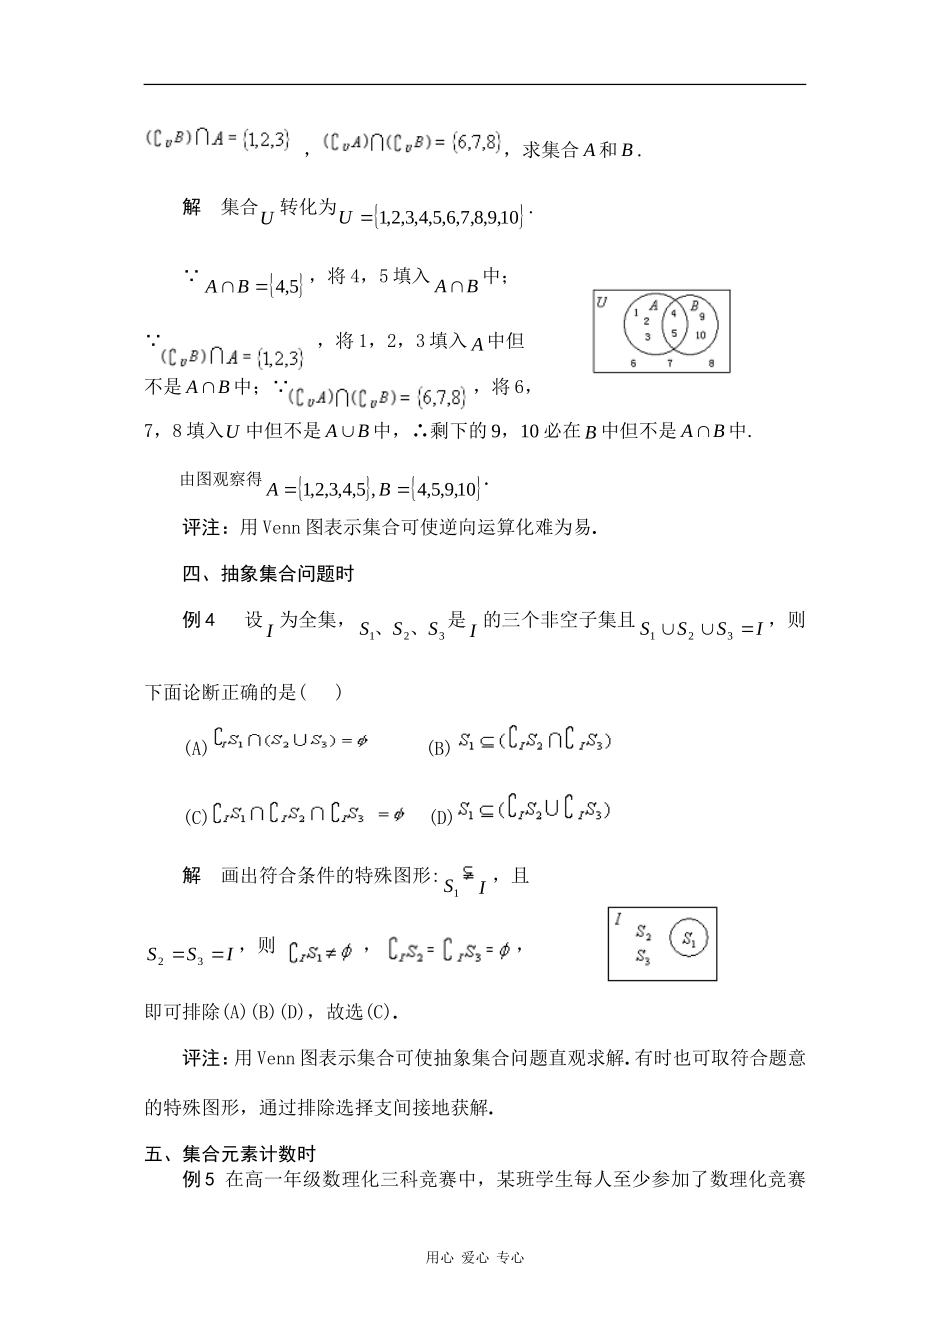 (∁_U B)∩A={1,2,3}，(∁_U A)∩(∁_U B)={6,7,8}，求集合 A 和 B .
解 集合 U 转化为 U={1,2,3,4,5,6,7,8,9,10}.
∵ A∩B={4,5}，将 4，5 填入 A∩B 中；
∵(∁_U B)∩A={1,2,3}，将 1，2，3 填入 A 中但
不是 A∩B 中；∵(∁_U A)∩(∁_U B)={6,7,8}，将 6，
7，8 填入 U 中但不是 A∪B 中，∴剩下的 9，10 必在 B 中但不是 A∩B 中.
U A B
1 2 3 4 5 9 10
6 7 8
由图观察得 A={1,2,3,4,5},B={4,5,9,10}.
评注：用 Venn 图表示集合可使逆向运算化难为易.
四、抽象集合问题时
例 4 设 I 为全集，S₁、S₂、S₃ 是 I 的三个非空子集且 S₁∪S₂∪S₃=I，则
下面论断正确的是( )
(A)∁_I S₁∩(S₂∪S₃)=ϕ (B) S₁⊆(∁_I S₂∩∁_I S₃)
(C)∁_I S₁∩∁_I S₂∩∁_I S₃=ϕ (D) S₁⊆(∁_I S₂∪∁_I S₃)
解 画出符合条件的特殊图形: S₁⫋I，且
S₂=S₃=I，则 ∁_I S₁≠ϕ，∁_I S₂=∁_I S₃=ϕ，
I S₂ S₃ S₁
即可排除(A)(B)(D)，故选(C).
评注：用 Venn 图表示集合可使抽象集合问题直观求解.有时也可取符合题意
的特殊图形，通过排除选择支间接地获解.
五、集合元素计数时
例 5 在高一年级数理化三科竞赛中，某班学生每人至少参加了数理化竞赛
用心 爱心 专心